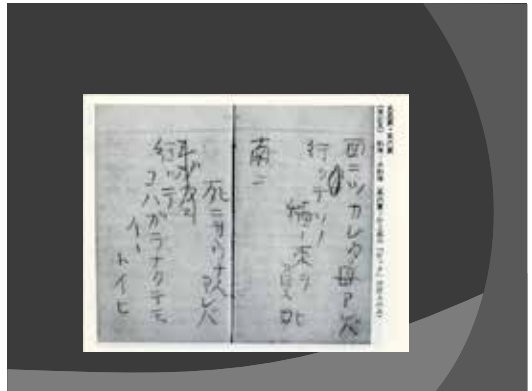 西ニツカレタ母アレバ
行ッテソノ
稲ノ束ヲ負ヒ
南ニ
死ニサウナ人アレバ
行ッテ
コハガラナクテモ
イヽ
トイヒ